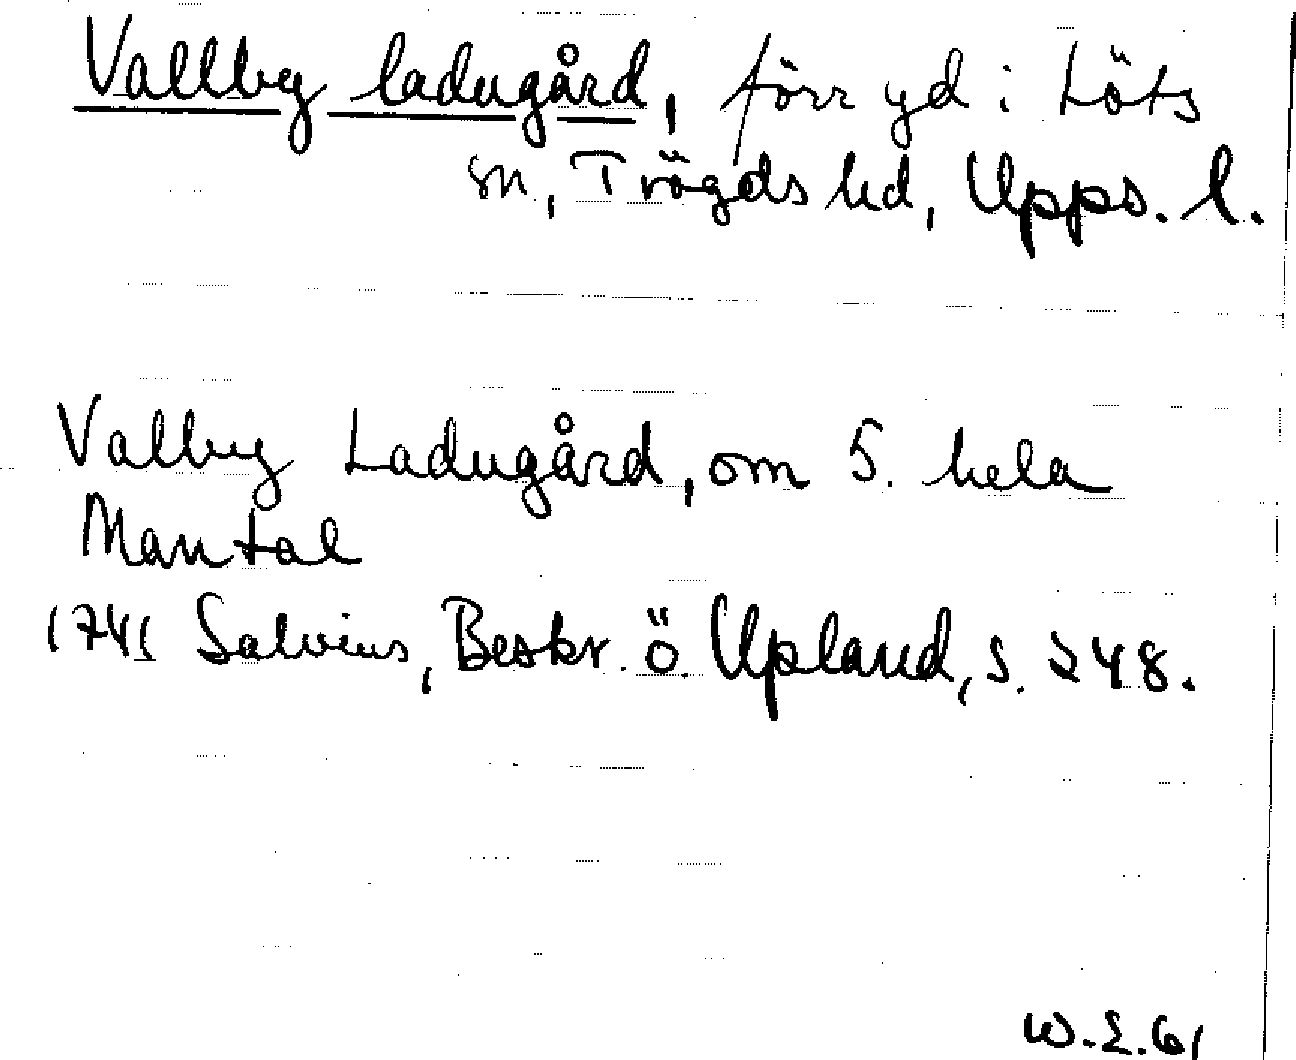 Vallby ladugård, förr gd i Löts
sn, Trögds hd, Upps. l.
Valby Ladugård, om 5. hela
Mantal
1741 Salvius, Beskr. ö. Upland, s. 248.
W.E.61